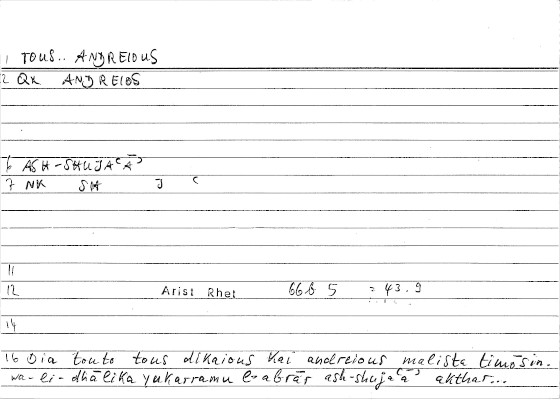 1 TOUS.. ANDREIOUS
2 Qx ANDREIOS
6 ASH-SHUJAʿĀʾ
7 NK SH J ʿ
11
12 Arist Rhet 66B 5 = 43.9
14
16 Dia touto tous dikaious kai andreious malista timōsin.
wa-li-dhālika yukarramu l-abrār ash-shujaʿāʾ akthar...